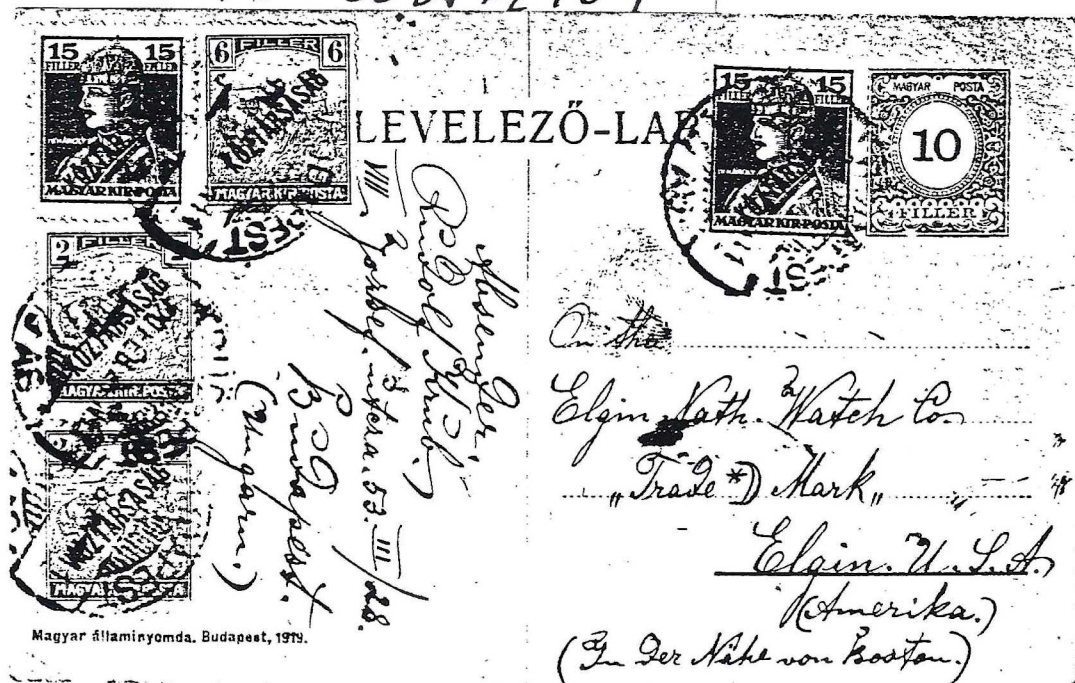 15 15
FILLER FILLER
KÖZTÁRSASÁG
MAGYAR KIR. POSTA
6 FILLER 6
KÖZTÁRSASÁG
MAGYAR KIR. POSTA
LEVELEZŐ-LAP
15 15
FILLER FILLER
MAGYAR KIR. POSTA
MAGYAR POSTA
10
FILLER
2 FILLER 2
KÖZTÁRSASÁG
MAGYAR KIR. POSTA
2
KÖZTÁRSASÁG
Absender:
Rudolf
VIII. utcza. 53. III/28.
Budapest.
(Ungarn.)
On the
Elgin Nath. Watch Co.
„Trade *) Mark„
Elgin. U. S. A.
(Amerika.)
(In der Nähe von Boston.)
Magyar államinyomda. Budapest, 1919.